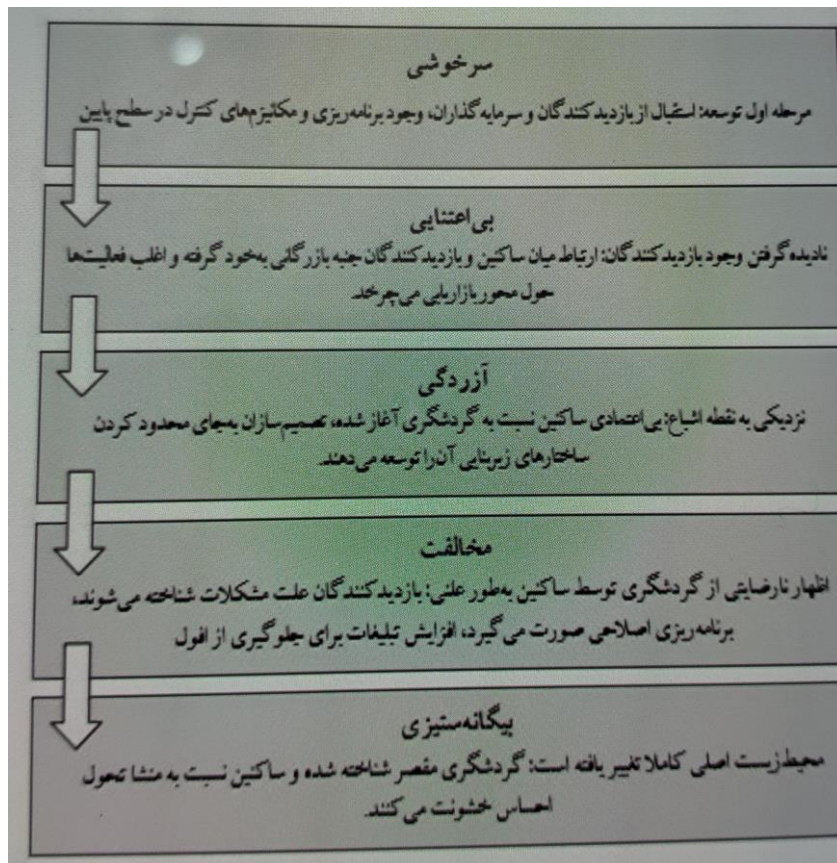 سرخوشی
مرحله اول توسعه: استقبال از بازدیدکنندگان و سرمایه‌گذاران، وجود برنامه‌ریزی و مکانیزم‌های کنترل در سطح پایین
بی‌اعتنایی
نادیده گرفتن وجود بازدیدکنندگان: ارتباط میان ساکنین و بازدیدکنندگان جنبه بازرگانی به‌خود گرفته و اغلب فعالیت‌ها
حول محور بازاریابی می‌چرخد.
آزردگی
نزدیکی به نقطه اشباع: بی‌اعتمادی ساکنین نسبت به گردشگری آغاز شده، تصمیم‌سازان به‌جای محدود کردن
ساختارهای زیربنایی آن‌را توسعه می‌دهند.
مخالفت
اظهار نارضایتی از گردشگری توسط ساکنین به‌طور علنی: بازدیدکنندگان علت مشکلات شناخته می‌شوند،
برنامه‌ریزی اصلاحی صورت می‌گیرد، افزایش تبلیغات برای جلوگیری از افول
بیگانه‌ستیزی
محیط‌زیست اصلی کاملا تغییر یافته است: گردشگری مقصر شناخته شده و ساکنین نسبت به منشا تحول
احساس خشونت می‌کنند.